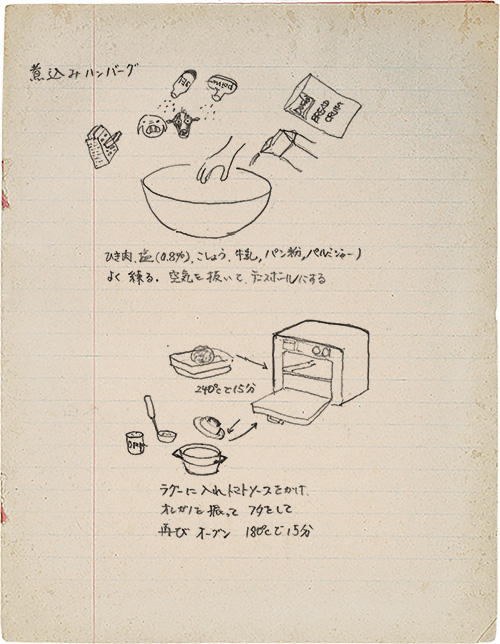 煮込みハンバーグ
BREAD
CRUMB
ひき肉、塩(0.8%)、こしょう、牛乳、パン粉、パルミジャーノ
よく練る。空気を抜いて、テニスボールにする
240℃で15分
ラグーに入れトマトソースをかけ
オレガノを振って フタをして
再び オーブン 180℃で15分